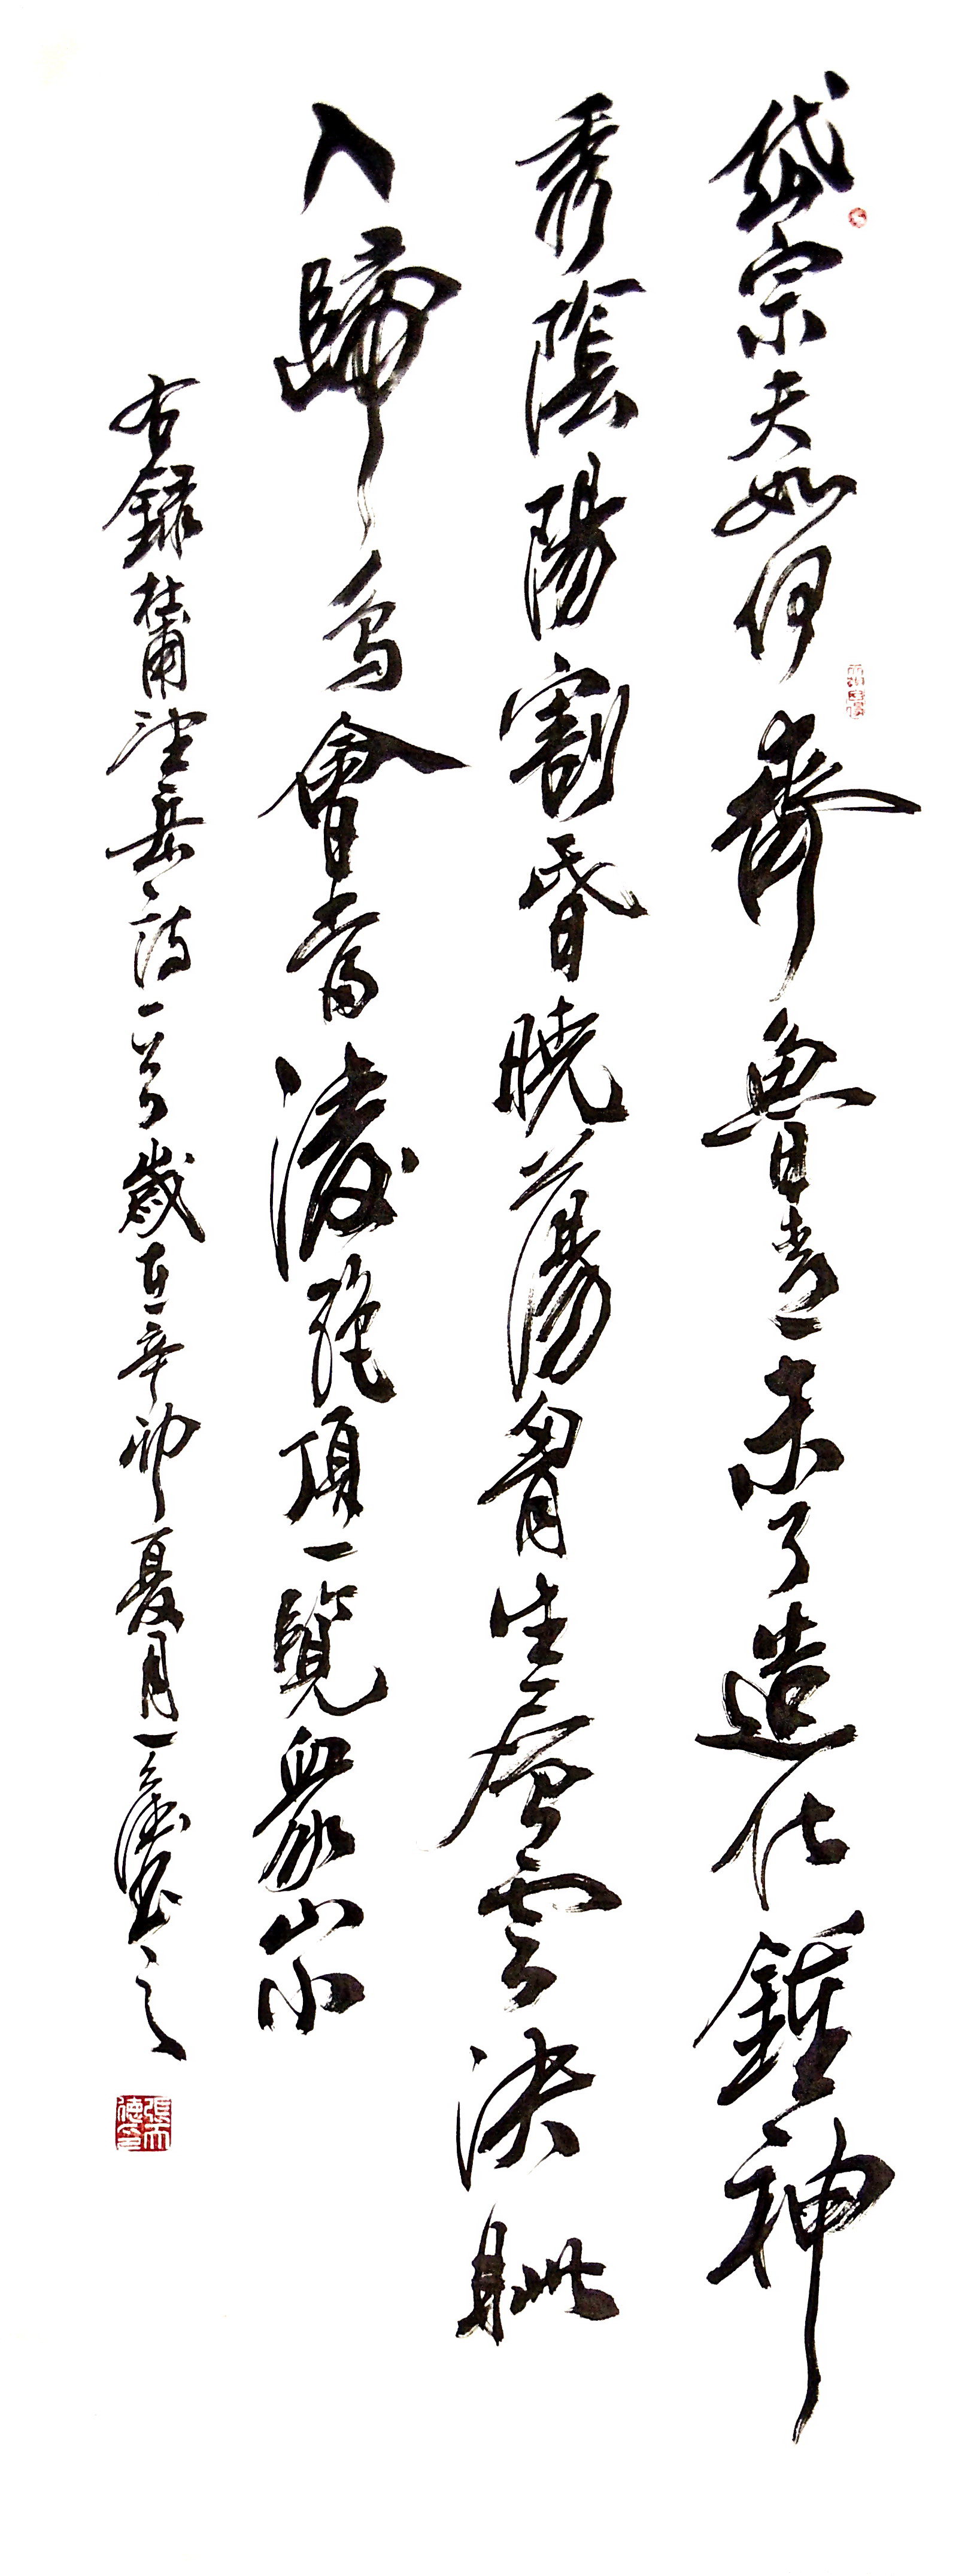 岱宗夫如何齊魯青未了造化鍾神
秀陰陽割昏曉蕩胷生層雲決眦
入歸鳥會當淩絕頂一覽衆山小
右錄杜甫望岳詩一首歲在辛卯夏月一之